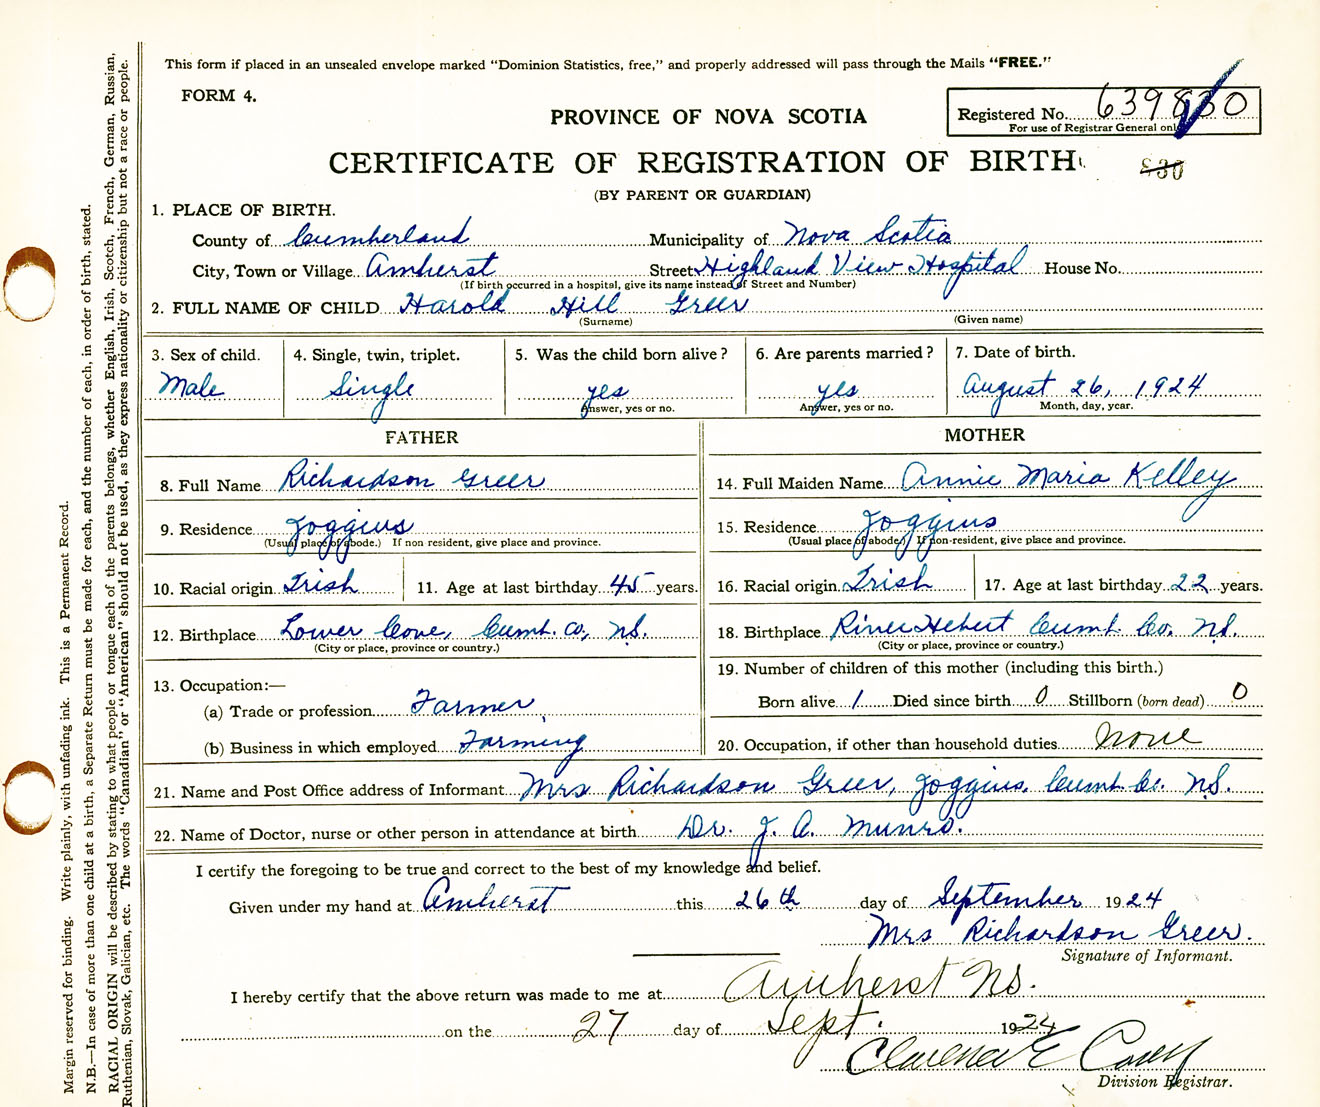 This form if placed in an unsealed envelope marked "Dominion Statistics, free," and properly addressed will pass through the Mails "FREE."
FORM 4.
PROVINCE OF NOVA SCOTIA
Registered No. 639830
For use of Registrar General only
CERTIFICATE OF REGISTRATION OF BIRTH
830
(BY PARENT OR GUARDIAN)
1. PLACE OF BIRTH.
County of Cumberland Municipality of Nova Scotia
City, Town or Village Amherst Street Highland View Hospital House No.
(If birth occurred in a hospital, give its name instead of Street and Number)
2. FULL NAME OF CHILD Harold Hill Greer
(Surname) (Given name)
3. Sex of child. 4. Single, twin, triplet. 5. Was the child born alive? 6. Are parents married? 7. Date of birth.
Male Single yes yes August 26, 1924
Answer, yes or no. Answer, yes or no. Month, day, year.
FATHER MOTHER
8. Full Name Richardson Greer 14. Full Maiden Name Annie Maria Kelley
9. Residence Joggins 15. Residence Joggins
(Usual place of abode.) If non-resident, give place and province. (Usual place of abode.) If non-resident, give place and province.
10. Racial origin Irish 11. Age at last birthday 45 years. 16. Racial origin Irish 17. Age at last birthday 22 years.
12. Birthplace Lower Cove, Cumb. Co, N.S. 18. Birthplace River Hebert Cumb. Co. N.S.
(City or place, province or country.) (City or place, province or country.)
13. Occupation:— 19. Number of children of this mother (including this birth.)
(a) Trade or profession Farmer Born alive 1 Died since birth 0 Stillborn (born dead) 0
(b) Business in which employed Farming 20. Occupation, if other than household duties None
21. Name and Post Office address of Informant Mrs Richardson Greer, Joggins, Cumb. Co. N.S.
22. Name of Doctor, nurse or other person in attendance at birth Dr. J. A. Munro.
I certify the foregoing to be true and correct to the best of my knowledge and belief.
Given under my hand at Amherst this 26th day of September 1924
Mrs Richardson Greer.
Signature of Informant.
I hereby certify that the above return was made to me at Amherst NS.
on the 27 day of Sept. 1924
Clarence E Casey
Division Registrar.
Margin reserved for binding. Write plainly, with unfading ink. This is a Permanent Record.
N.B.—In case of more than one child at a birth, a Separate Return must be made for each, and the number of each, in order of birth, stated.
RACIAL ORIGIN will be described by stating to what people or tongue each of the parents belongs, whether English, Irish, Scotch, French, German, Russian,
Ruthenian, Slovak, Galician, etc. The words "Canadian" or "American" should not be used, as they express nationality or citizenship but not a race or people.